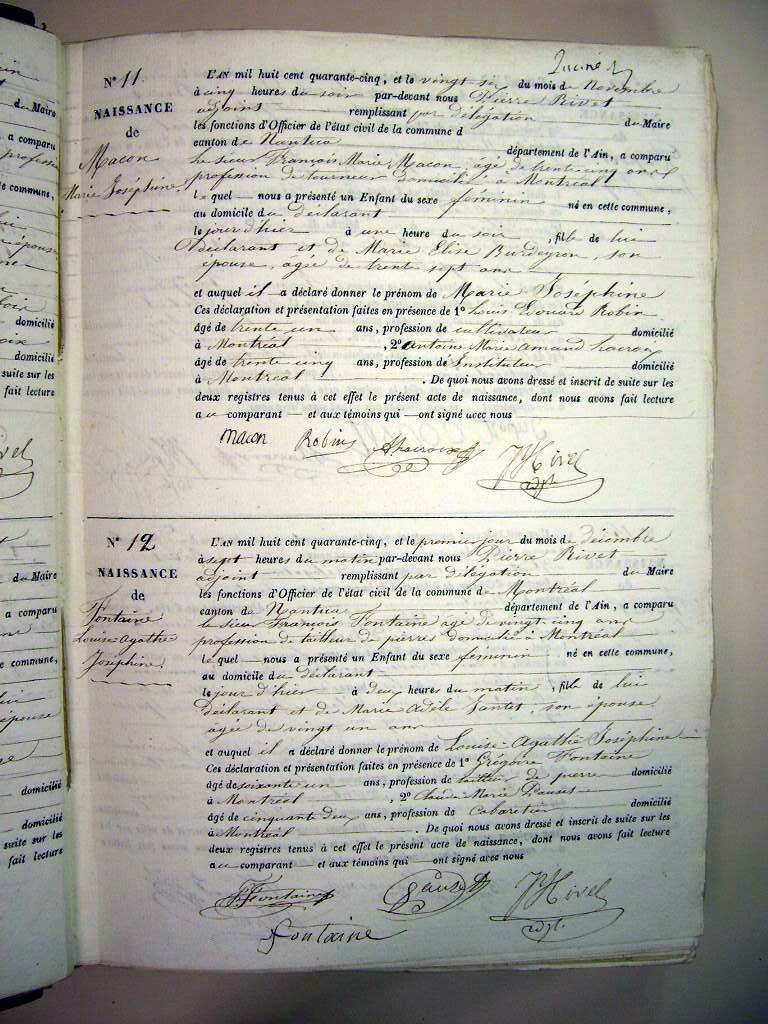 N° 11
NAISSANCE
de
Macon
Marie Joséphine
L'AN mil huit cent quarante-cinq, et le vingt six du mois de novembre
à cinq heures du soir par-devant nous Pierre Rivet
adjoint remplissant par délégation du Maire
les fonctions d'Officier de l'état civil de la commune d
canton de Nantua département de l'Ain, a comparu
le sieur François Marie Macon, âgé de trente cinq ans
profession de tourneur domicilié à Montréal
le quel nous a présenté un Enfant du sexe féminin né en cette commune,
au domicile du déclarant
le jour d'hier à une heure du soir, fille de lui
déclarant et de Marie Elise Burdeyron, son
épouse, agée de trente sept ans
et auquel il a déclaré donner le prénom de Marie Joséphine
Ces déclaration et présentation faites en présence de 1° Louis Edouard Robin
âgé de trente un ans, profession de cultivateur domicilié
à Montréal, 2° Antoine Marie Amand Lacroix
âgé de trente cinq ans, profession d'Instituteur domicilié
à Montréal. De quoi nous avons dressé et inscrit de suite sur les
deux registres tenus à cet effet le présent acte de naissance, dont nous avons fait lecture
au comparant et aux témoins qui ont signé avec nous
Macon Robin ALacroix PRivet
adjt.
N° 12
NAISSANCE
de
Fontaine
Louise Agathe
Joséphine
L'AN mil huit cent quarante-cinq, et le premier jour du mois de décembre
à sept heures du matin par-devant nous Pierre Rivet
adjoint remplissant par délégation du Maire
les fonctions d'Officier de l'état civil de la commune de Montréal
canton de Nantua département de l'Ain, a comparu
le sieur François Fontaine âgé de vingt cinq ans
profession de tailleur de pierres domicilié à Montréal
le quel nous a présenté un Enfant du sexe féminin né en cette commune,
au domicile du déclarant
le jour d'hier à deux heures du matin, fille de lui
déclarant et de Marie Adèle son épouse
agée de vingt un ans
et auquel il a déclaré donner le prénom de Louise-Agathe Joséphine
Ces déclaration et présentation faites en présence de 1° Grégoire Fontaine
âgé de soixante un ans, profession de tailleur de pierre domicilié
à Montréal, 2° Claude Marie
âgé de cinquante deux ans, profession de Cabaretier domicilié
à Montréal. De quoi nous avons dressé et inscrit de suite sur les
deux registres tenus à cet effet le présent acte de naissance, dont nous avons fait lecture
au comparant et aux témoins qui ont signé avec nous
F. Fontaine PRivet
adjt.
fontaine